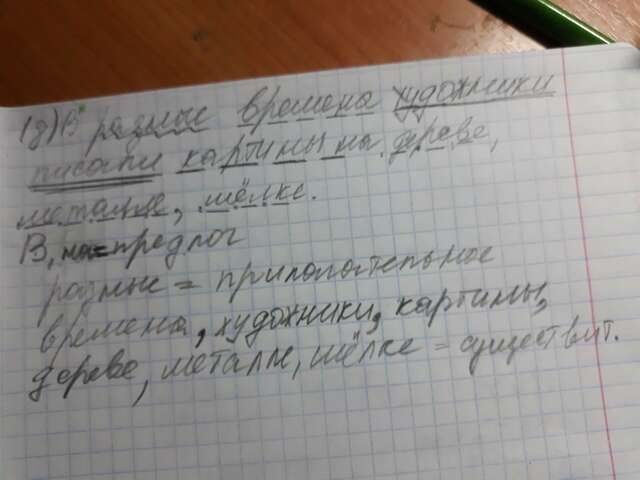 1д) В разные времена художники
писали картины на дереве,
металле, шёлке.
В, на = предлог
разные = прилогательное
времена, художники, картины,
дереве, металле, шёлке = существит.